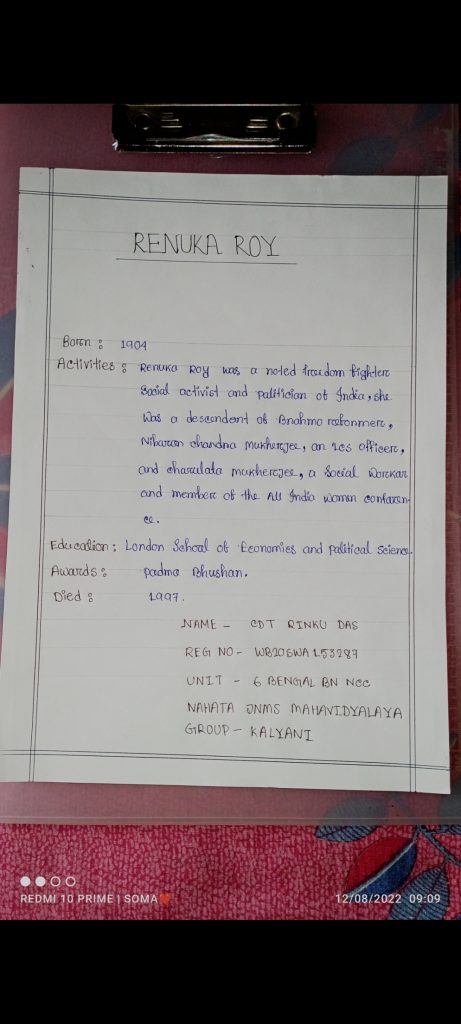 RENUKA ROY
Born : 1904
Activities : Renuka Roy was a noted freedom fighter
Social activist and palitician of India, she
was a descendent of Brahmo reformer,
Nibaran chandra mukherjee, an ics officer,
and charulata mukherjee, a Social workar
and member of the All India women conferen-
ce.
Education : London School of Economics and political science.
Awards : padma Bhushan.
Died : 1997.
NAME - CDT RINKU DAS
REG NO - WB20SWA153287
UNIT - 6 BENGAL BN NCC
NAHATA JNMS MAHAVIDYALAYA
GROUP - KALYANI
REDMI 10 PRIME | SOMA❤
12/08/2022 09:09